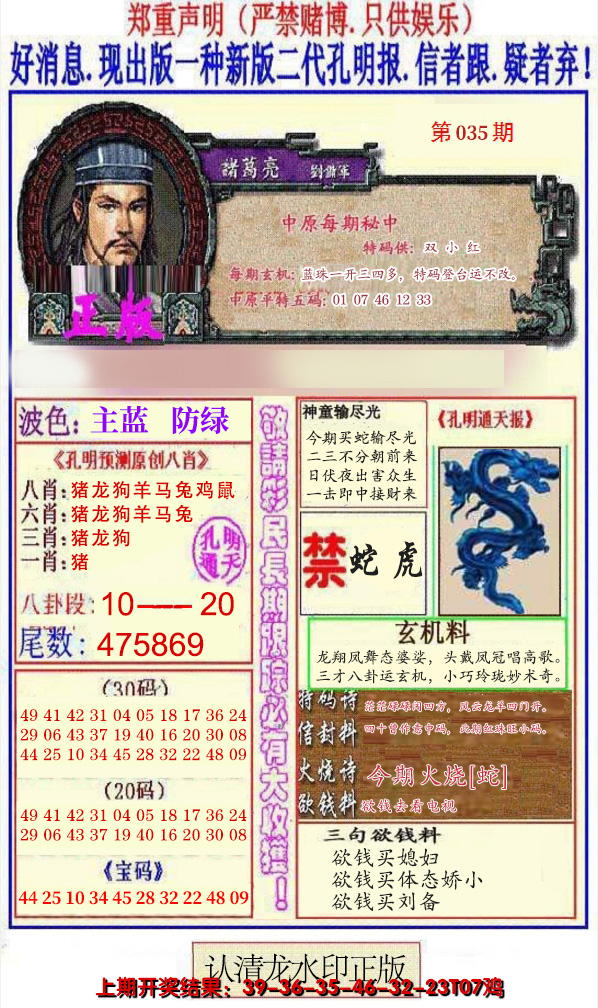 郑重声明（严禁赌博.只供娱乐）
好消息.现出版一种新版二代孔明报.信者跟.疑者弃！
第035期
諸葛亮 劉備軍
中原每期秘中
特码供：双小红
每期玄机：蓝珠一开三四多，特码登台运不改。
中原平特五码：01 07 46 12 33
正版
波色：主蓝 防绿
《孔明预测原创八肖》
八肖：猪龙狗羊马兔鸡鼠
六肖：猪龙狗羊马兔
三肖：猪龙狗
一肖：猪
孔明通天
八卦段：10——20
尾数：475869
（30码）
49 41 42 31 04 05 18 17 36 24
29 06 43 37 19 40 16 20 30 08
44 25 10 34 45 28 32 22 48 09
（20码）
49 41 42 31 04 05 18 17 36 24
29 06 43 37 19 40 16 20 30 08
《宝码》
44 25 10 34 45 28 32 22 48 09
敬請彩民長期跟踪必有大收獲！
神童输尽光
今期买蛇输尽光
二三不分朝前来
日伏夜出害众生
一击即中接财来
《孔明通天报》
禁蛇虎
玄机料
龙翔凤舞态婆娑，头戴凤冠唱高歌。
三才八卦运玄机，小巧玲珑妙术奇。
特码诗 茫茫碌碌闯四方，风云龙羊四门开。
信封料 四十曾作意中码，此期红珠旺小码。
火烧诗 今期火烧[蛇]
欲钱料 欲钱去看电视
三句欲钱料
欲钱买媳妇
欲钱买体态娇小
欲钱买刘备
认清龙水印正版
上期开奖结果：39-36-35-46-32-23T07鸡